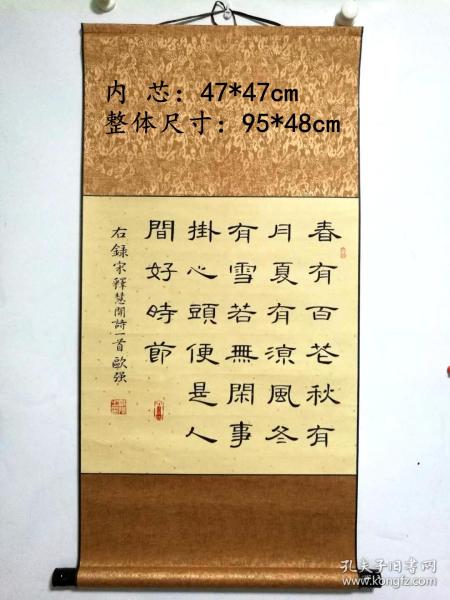 内 芯：47*47cm
整体尺寸：95*48cm
春有百花秋有
月夏有涼風冬
有雪若無閑事
掛心頭便是人
間好時節
右録宋釋慧開詩一首 歐强
孔夫子旧书网
www.kongfz.com